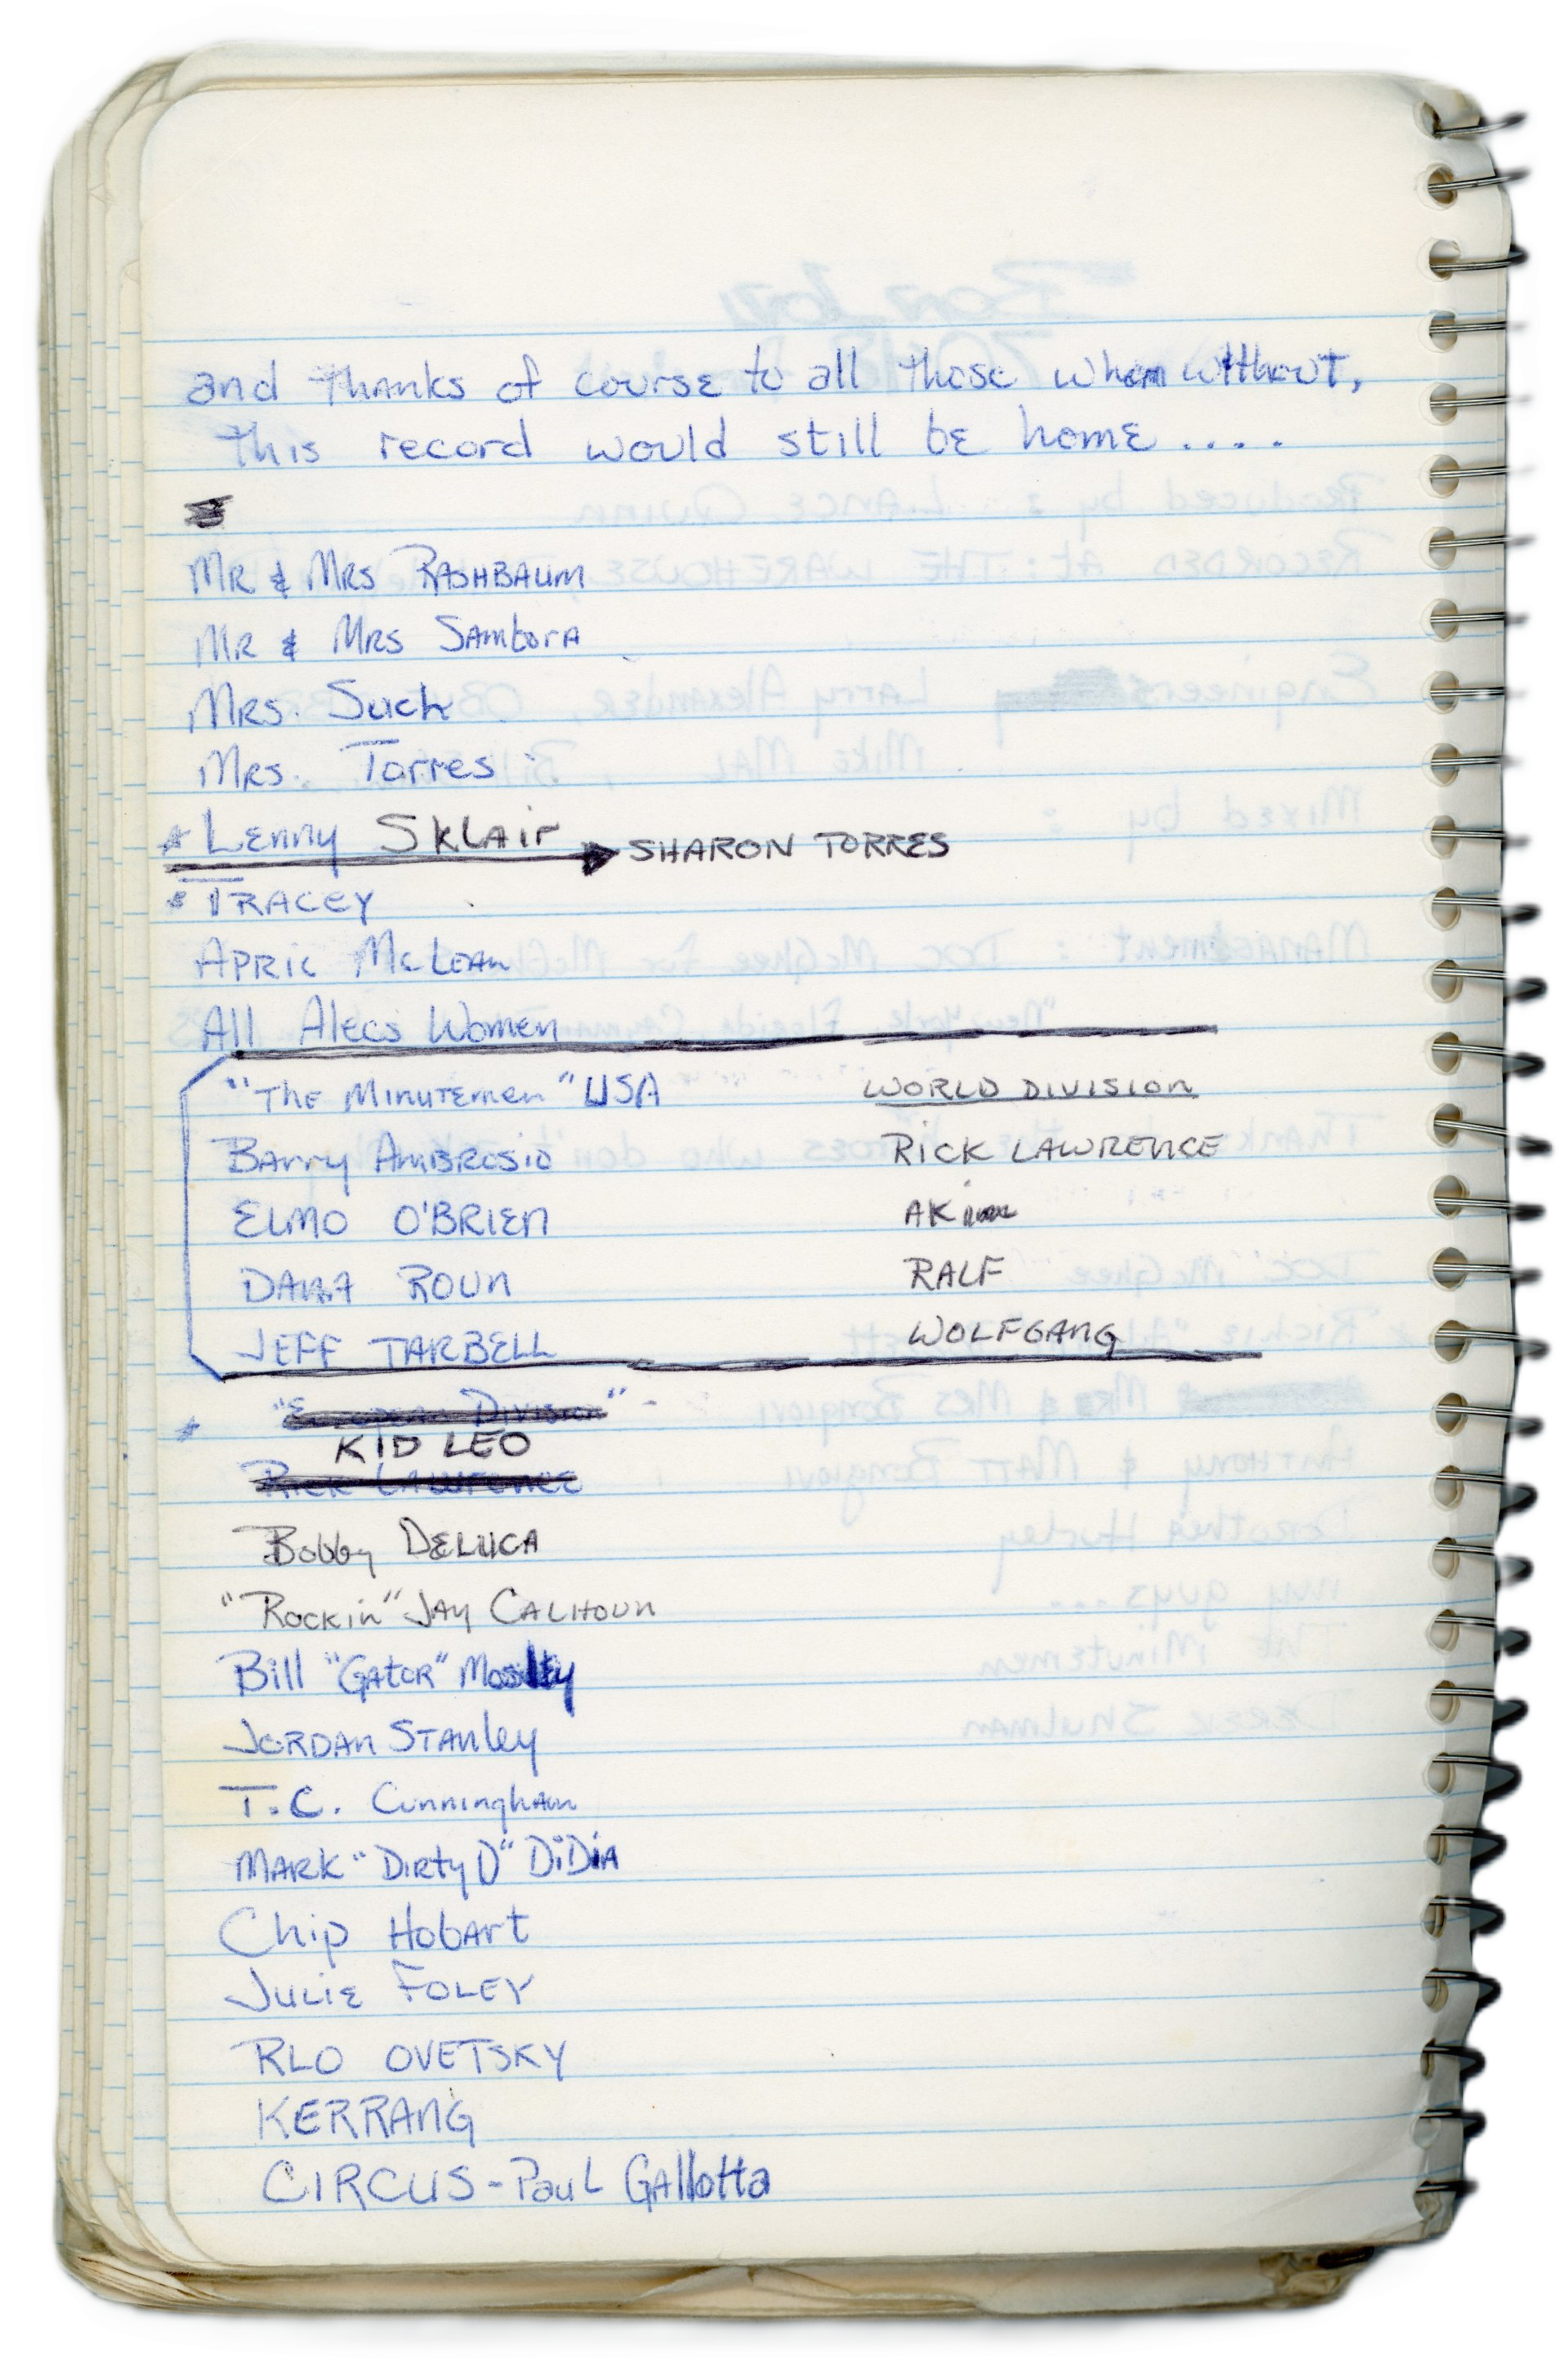 and Thanks of course to all those whom without,
this record would still be home ....
Mr & Mrs Rashbaum
Mr & Mrs Sambora
Mrs. Such
Mrs. Torres
* Lenny Sklair → SHARON TORRES
* TRACEY
April McLean
All Alecs Women
"The Minutemen" USA WORLD DIVISION
Barry Ambrosio RICK LAWRENCE
ELMO O'BRIEN AK
DANA ROUN RALF
JEFF TARBELL WOLFGANG
* "European Division" -
KID LEO
Rick Lawrence
Bobby DELUCA
"Rockin" JAY CALHOUN
Bill "Gator" Moslty
JORDAN STANley
T.C. Cunningham
MARK "Dirty D" DiDia
Chip Hobart
Julie FOLEY
RLO OVETSKY
KERRANG
CIRCUS - Paul Gallotta